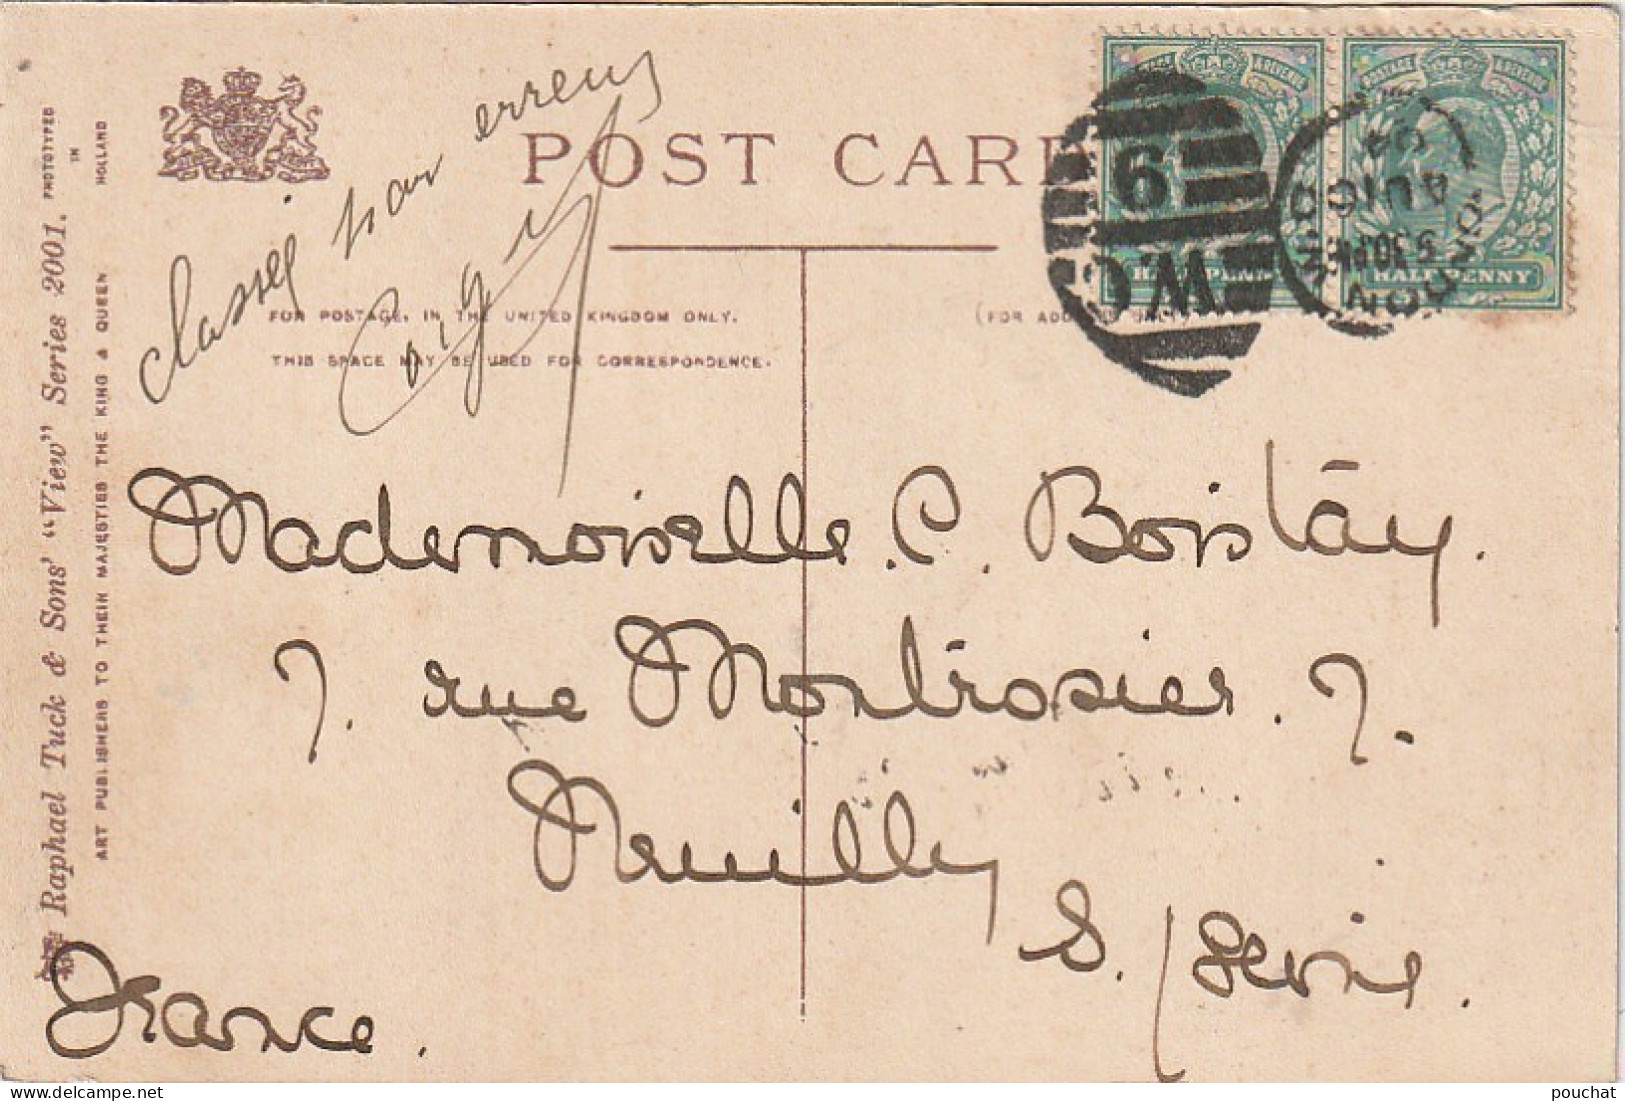 PHOTOTYPED
IN
HOLLAND
Raphael Tuck & Sons' "View" Series 2001.
ART PUBLISHERS TO THEIR MAJESTIES THE KING & QUEEN
classée par erreur
POST CARD
FOR POSTAGE, IN THE UNITED KINGDOM ONLY.
THIS SPACE MAY BE USED FOR CORRESPONDENCE.
(FOR ADDRESS ONLY)
POSTAGE & REVENUE
HALFPENNY
POSTAGE & REVENUE
HALFPENNY
9
W.C
LONDON. W.C
5 30 PM
AU 10
04
Mademoiselle. C. Boistäy.
7. rue Montrosier. 7.
Neuilly
S. / Seine.
France.
pouchat